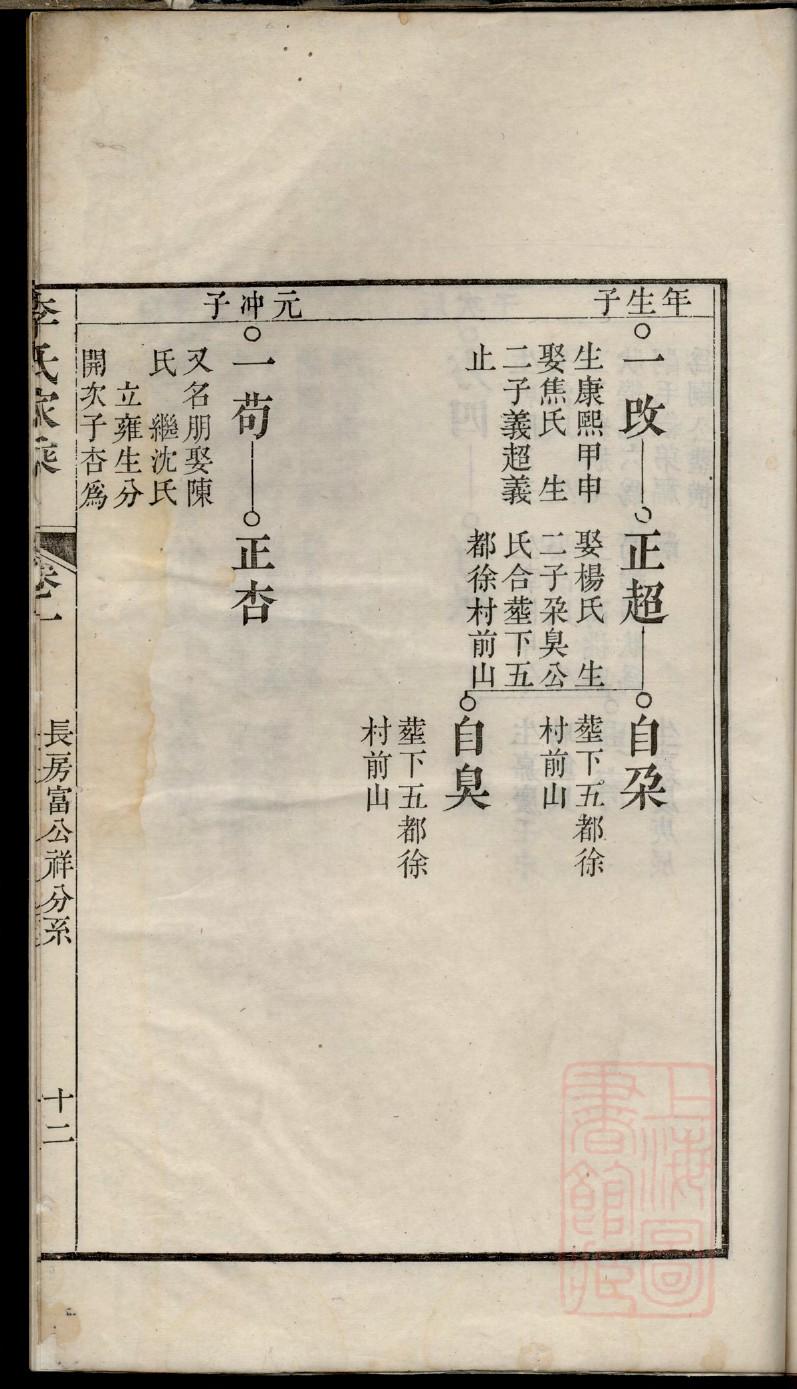 年生子
一攺
生康熙甲申
娶焦氏　生
二子義超義
止
正超
娶楊氏　生
二子朶臭公
氏合塟下五
都徐村前山
自朶
塟下五都徐
村前山
自臭
塟下五都徐
村前山
元冲子
一苟
又名朋娶陳
氏　繼沈氏
立雍生分
開次子杏爲
正杏
李氏家乘
卷
長房富公祥分系
十二
上海圖書館藏